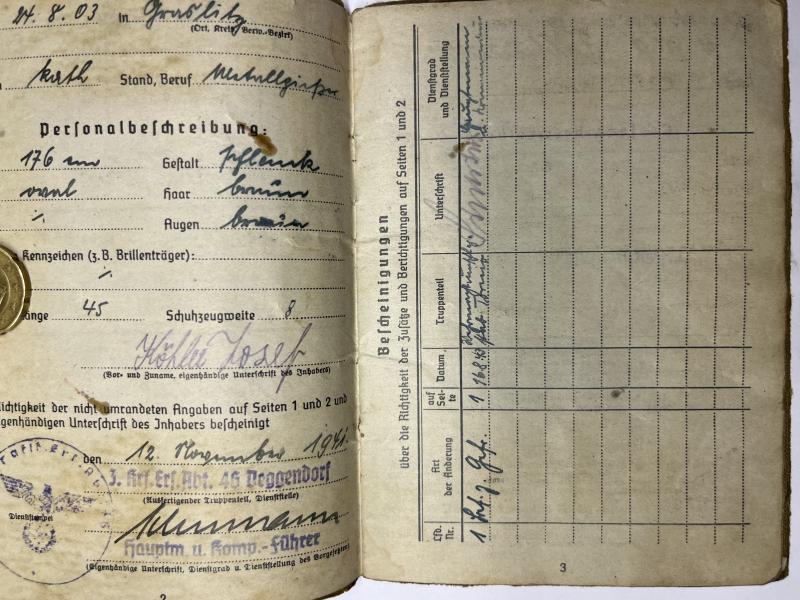 24.8.03 in Graslitz
(Ort, Kreis, Verw.-Bezirk)
kath Stand, Beruf Metallgießer
Personalbeschreibung:
176 cm Gestalt schlank
oval Haar braun
⁒ Augen braun
Kennzeichen (z.B. Brillenträger):
⁒
änge 45 Schuhzeugweite 8
Köhler Josef
(Vor- und Zuname, eigenhändige Unterschrift des Inhabers)
ichtigkeit der nicht umrandeten Angaben auf Seiten 1 und 2 und
genhändigen Unterschrift des Inhabers bescheinigt
den 12. November 1941.
3. Krf.Ers.Abt. 46 Deggendorf
(Ausfertigender Truppenteil, Dienststelle)
Dienststempel
Schumann
Hauptm. u. Komp.-Führer
(Eigenhändige Unterschrift, Dienstgrad u. Dienststellung des Vorgesetzten)
2
Bescheinigungen
über die Richtigkeit der Zusätze und Berichtigungen auf Seiten 1 und 2
Lfd. Nr.
Art der Änderung
auf Seite
Datum
Truppenteil
Unterschrift
Dienstgrad und Dienststellung
1 Gefr. 1 16.8.43
3